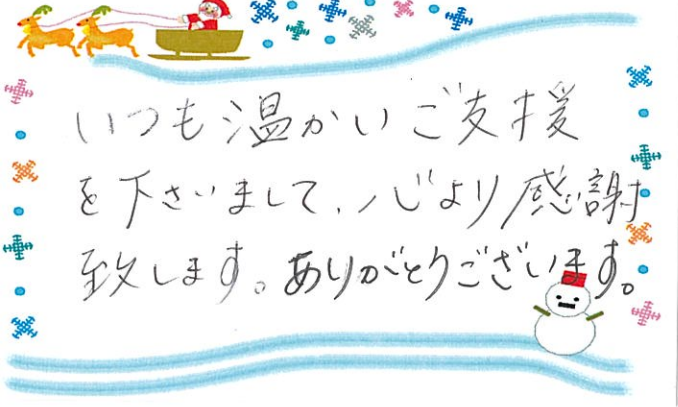 いつも温かいご支援
を下さいまして、心より感謝
致します。ありがとうございます。